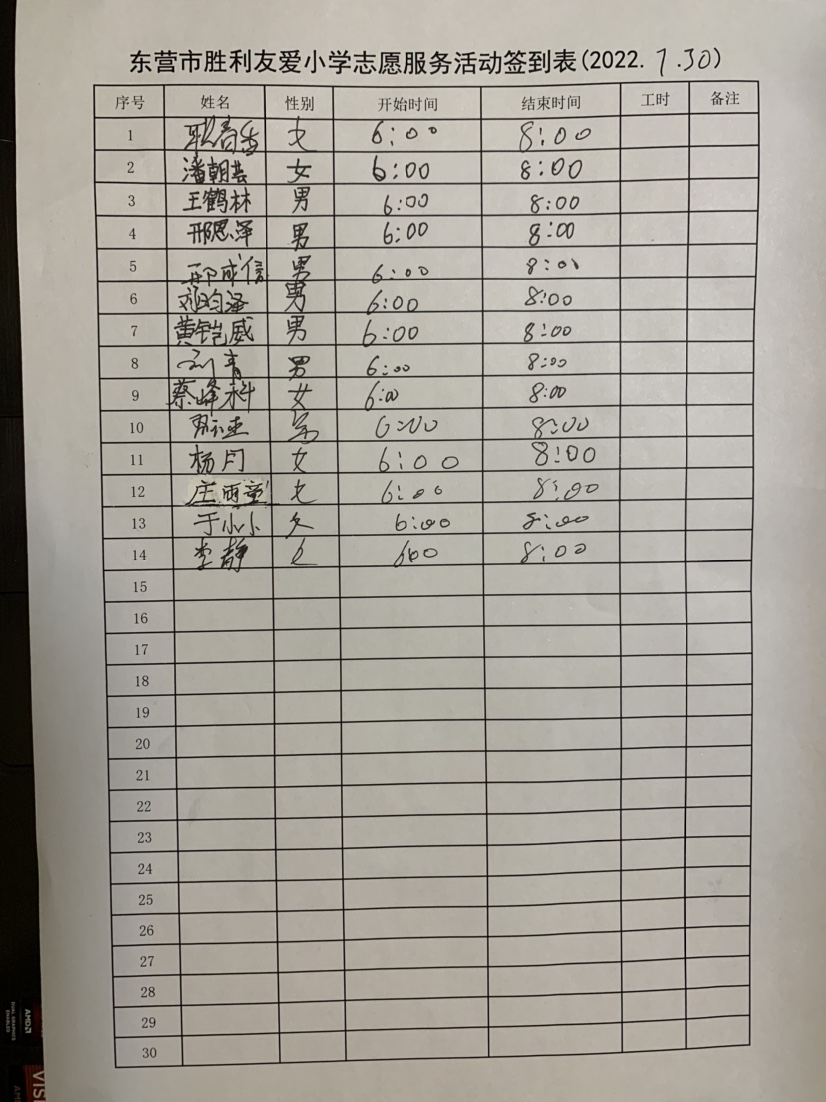 东营市胜利友爱小学志愿服务活动签到表(2022.7.30)
序号 姓名 性别 开始时间 结束时间 工时 备注
1 女 6:00 8:00
2 潘朝芸 女 6:00 8:00
3 王鹤林 男 6:00 8:00
4 邢恩泽 男 6:00 8:00
5 邢成信 男 6:00 8:00
6 刘昀泽 男 6:00 8:00
7 黄铠威 男 6:00 8:00
8 刘青 男 6:00 8:00
9 蔡峰科 女 6:00 8:00
10 6:00 8:00
11 杨月 女 6:00 8:00
12 庄雨童 女 6:00 8:00
13 于小小 女 6:00 8:00
14 李静 女 600 8:00
15
16
17
18
19
20
21
22
23
24
25
26
27
28
29
30
AMD
DUAL GRAPHICS
ENABLED
VIS
AM